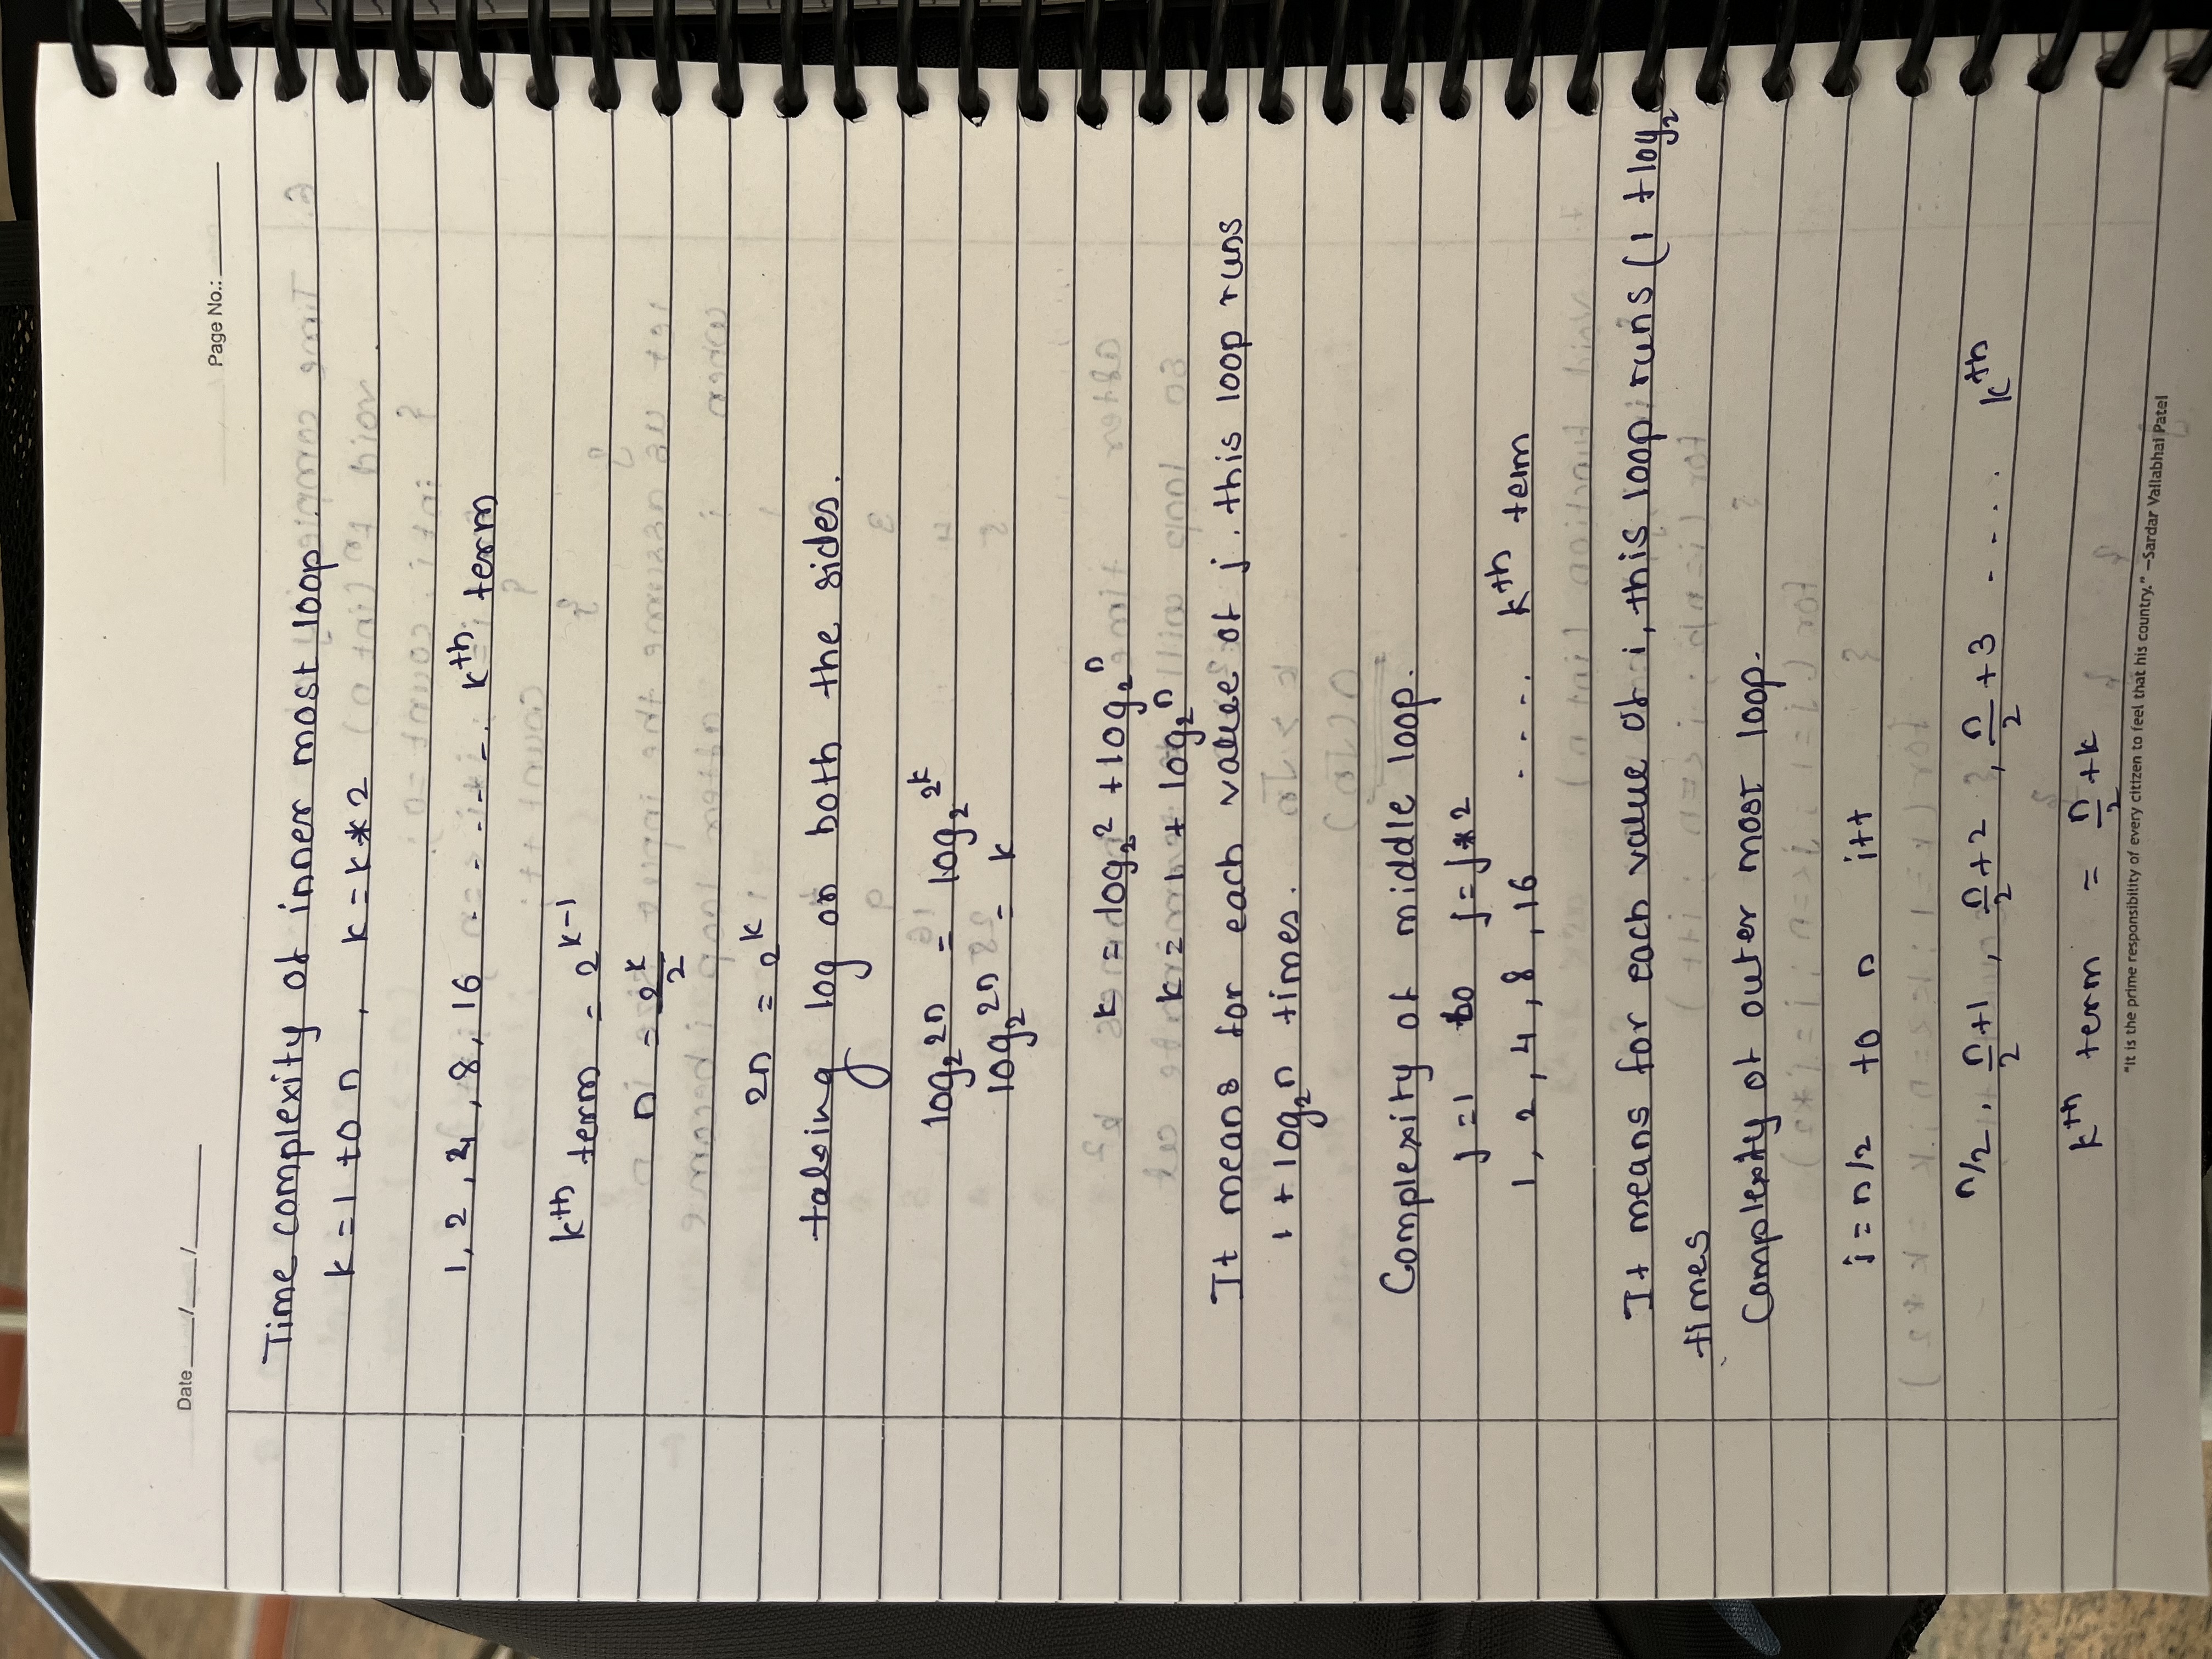 Date____/____/________
Page No.:________
Time complexity of inner most loop
k = 1 to n , k = k * 2
1, 2, 4, 8, 16 - - - - - - . kth term
kth term = 2^k-1
n = 2^k/2
2n = 2^k
taking log on both the sides.
log₂ 2n = log₂ 2^k
log₂ 2n = k
k = log₂ 2 + log₂ n
k = 1 + log₂ n
It means for each value of j. this loop runs
1 + log₂ n times.
Complexity of middle loop.
j = 1 to j = j * 2
1, 2, 4, 8, 16 - - - . kth term
It means for each value of i, this loop runs (1 + log₂
times
Complexity of outer most loop.
i = n/2 to n i++
n/2 , n/2 + 1 , n/2 + 2 , n/2 + 3 - - - - . kth
kth term = n/2 + k
"It is the prime responsibility of every citizen to feel that his country." —Sardar Vallabhai Patel